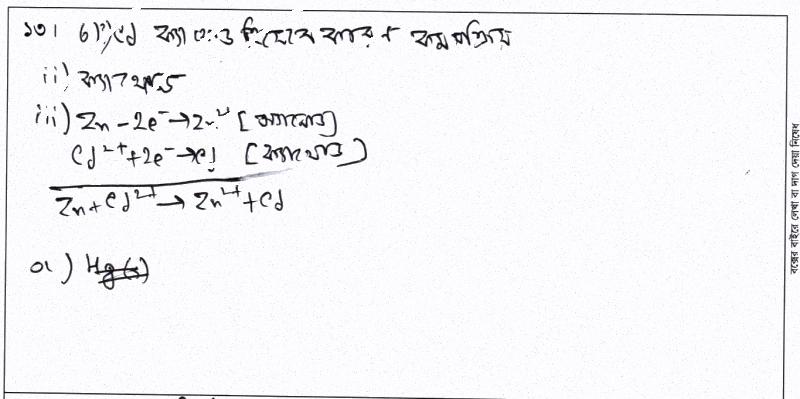 ১৩। b) i) Cd ক্যাথোড হিসেবে কারণ কম সক্রিয়
ii) ক্যাথোড
iii) Zn - 2e⁻ → Zn²⁺ [অ্যানোড]
Cd²⁺ + 2e⁻ → Cd [ক্যাথোড]
Zn + Cd²⁺ → Zn²⁺ + Cd
a)
বক্সের বাইরে লেখা বা দাগ দেয়া নিষেধ